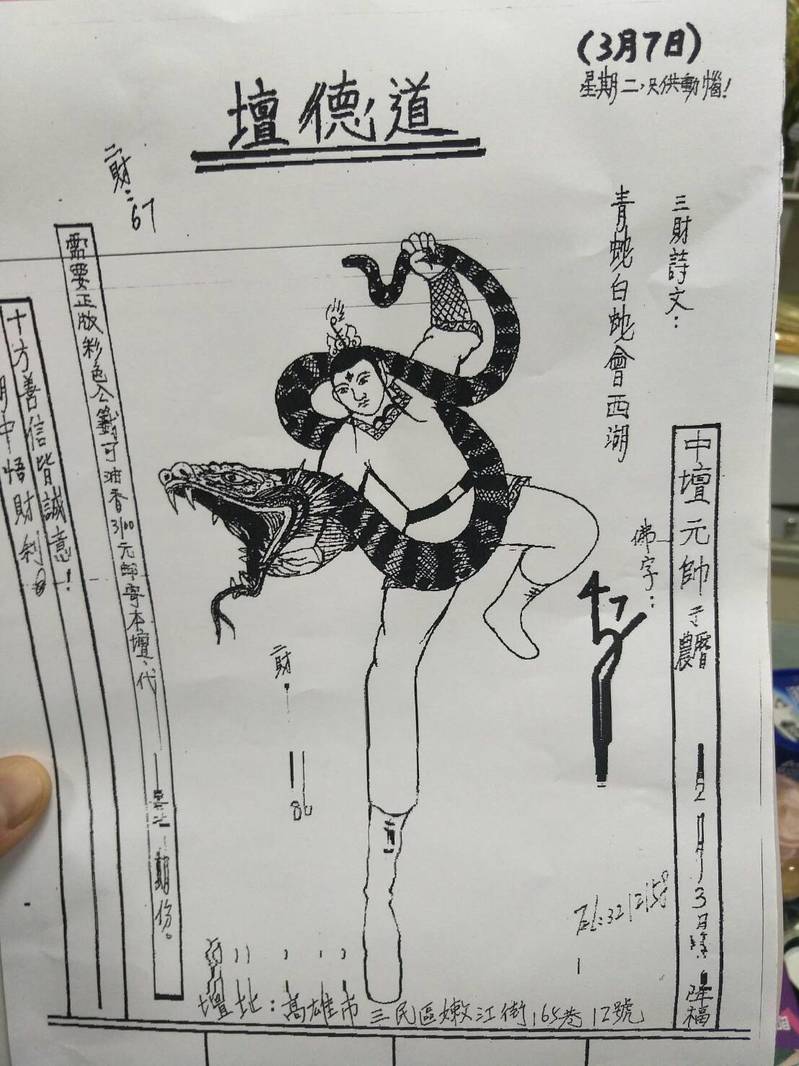 (3月7日)
星期二,只供動惱!
壇德道
三財詩文:
青蛇白蛇會西湖
中壇元帥
農曆
2月
3日
降福
佛字:
二財:67
需要正版彩色公籤可油香3100元郵寄本壇、代
期份。
十方善信皆誠意!
中悟財利。
財
86
壇地:高雄市三民區嫩江街165巷12號